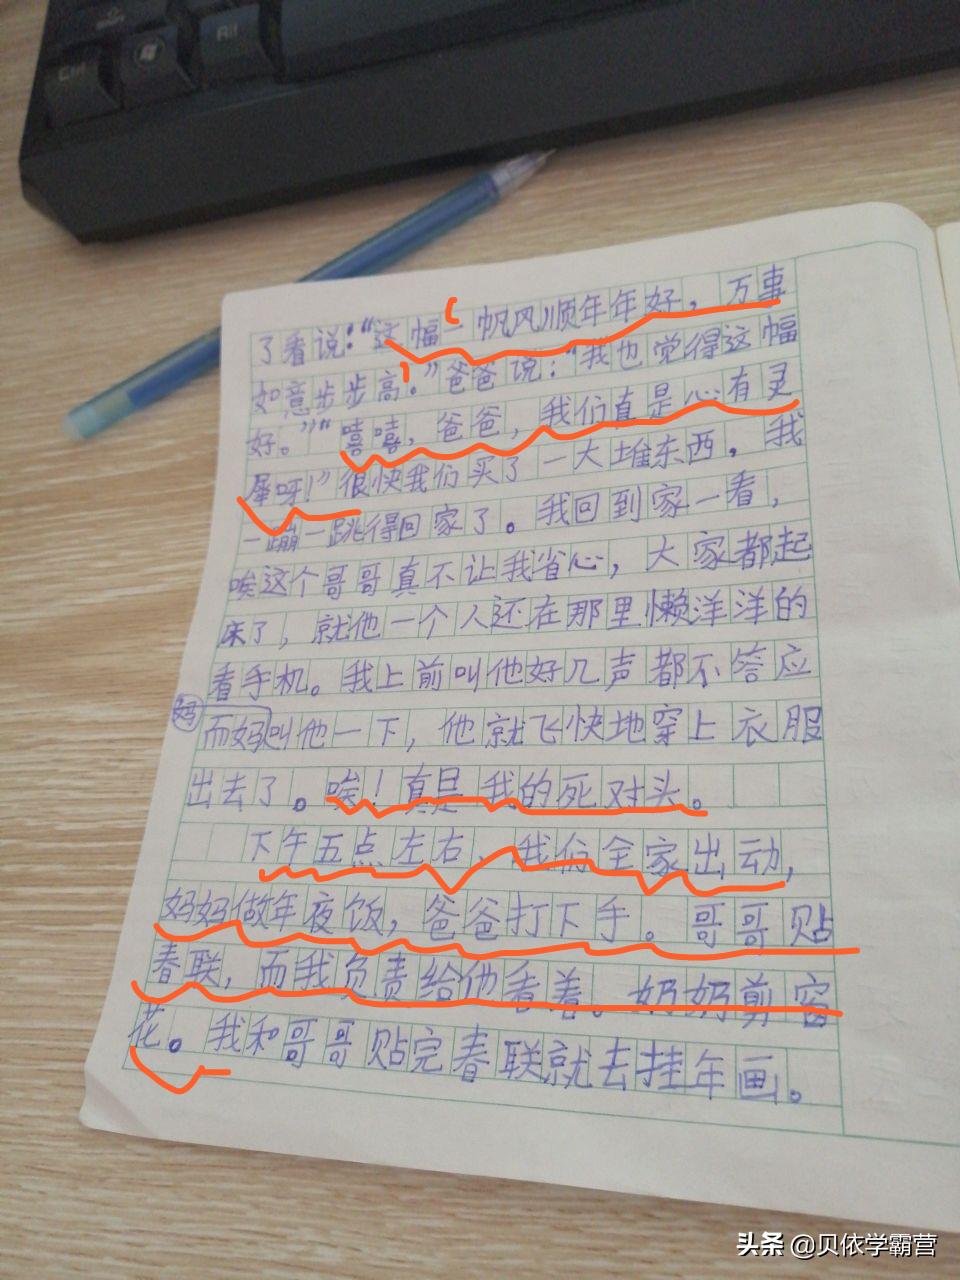 Ctrl
Alt
了看说：“这幅‘一帆风顺年年好，万事
如意步步高’。”爸爸说：“我也觉得这幅
好。”“嘻嘻，爸爸，我们真是心有灵
犀呀！”很快我们买了一大堆东西。我
一蹦一跳得回家了。我回到家一看，
唉这个哥哥真不让我省心，大家都起
床了，就他一个人还在那里懒洋洋的
看手机。我上前叫他好几声都不答应
妈
而妈叫他一下，他就飞快地穿上衣服
出去了。唉！真是我的死对头。
下午五点左右，我们全家出动，
妈妈做年夜饭，爸爸打下手。哥哥贴
春联，而我负责给他看着。奶奶剪窗
花。我和哥哥贴完春联就去挂年画。
头条 @贝依学霸营